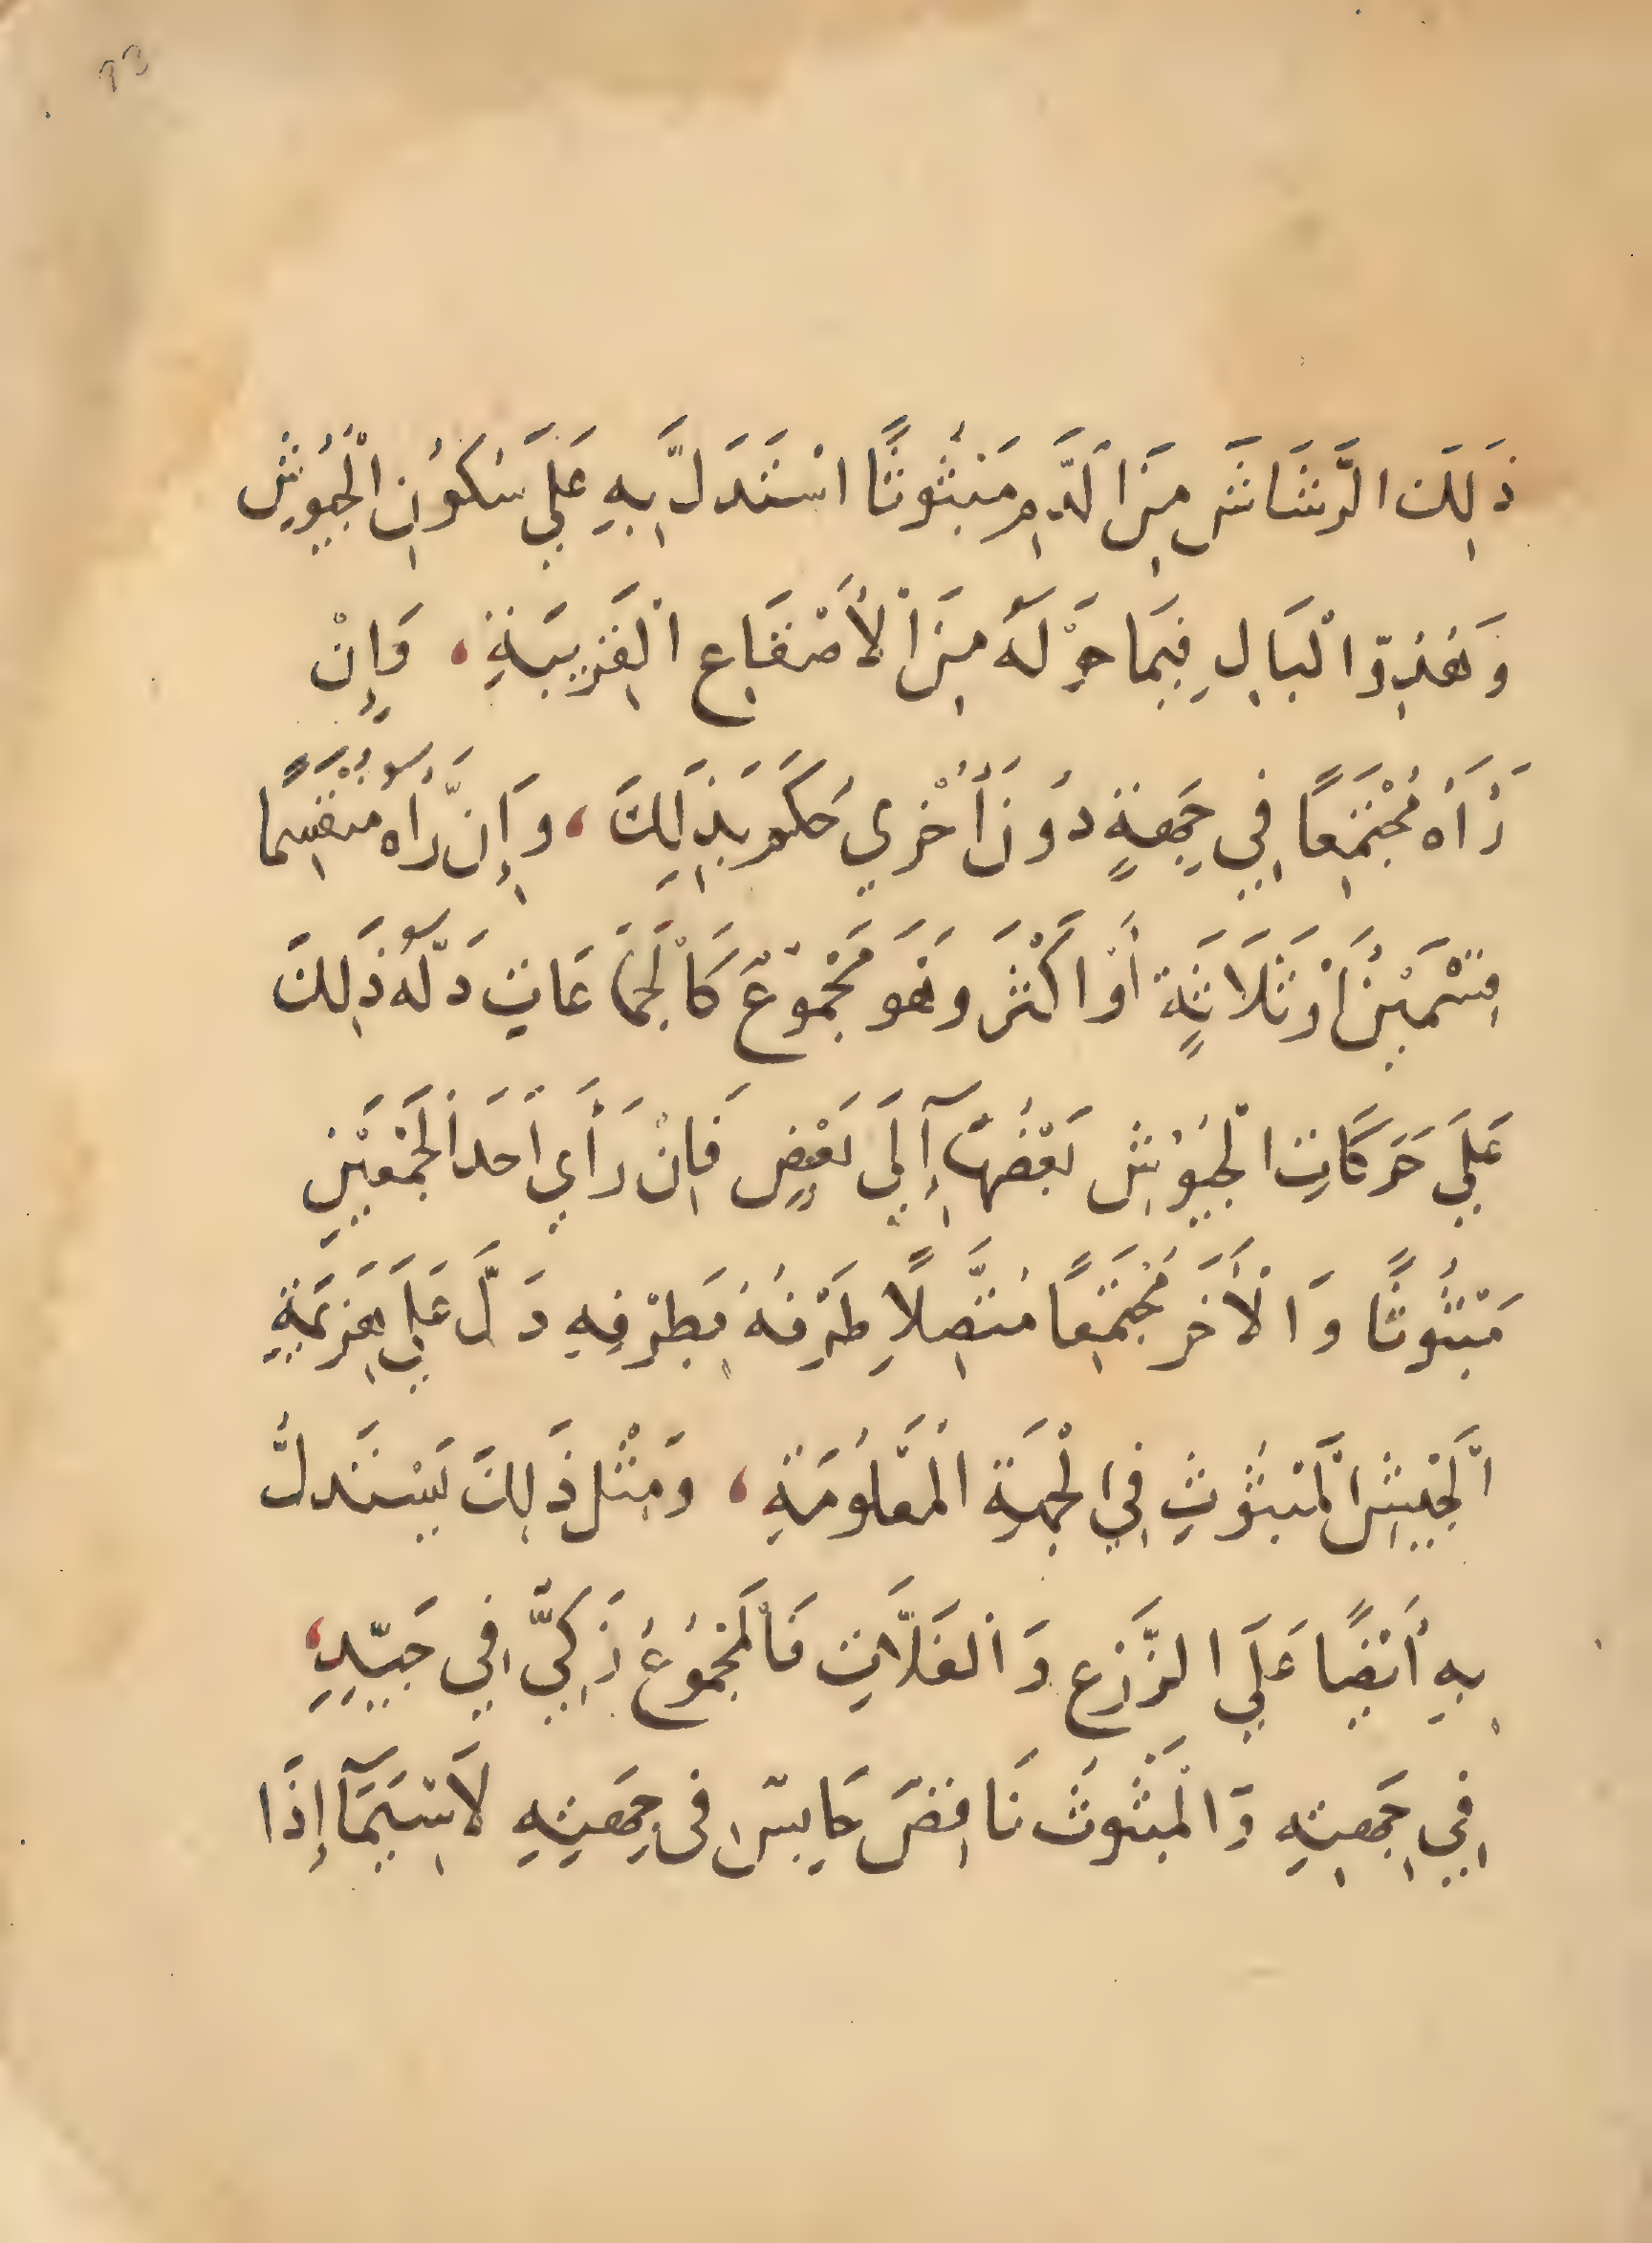 ٢٣
ذَلِكَ الرَّشَاشَ مِنَ الَّدَمِ مَنْبُثُوثًا اسْتَدَلَّ بِهِ عَلَي سُكُونِ الْجُيُوشِ
وَهُدُوِّ الْبَالِ فِيمَا حَوْلَهُ مِنَ الْأَصْقَاعِ الْقَرِيبَةِ، وَإِنْ
رَأَهُ مُجْتَمِعًا فِي جِهَةٍ دُونَ أُخْرَي حَكَمَ بِذَلِكَ، وَإِنْ رَّأَهُ مُنْقَسِمًا
قِسْمَيْنِ أَوْ ثَلَاثَةٍ أَوْ اكْثَرَ وَهُوَ مَجْمُوعٌ كَالْجَمَاعَاتِ دَلَّهُ ذَلِكَ
عَلَي حَرَكَاتِ الْجُيُوشِ بَعْضُهَا إِلَي بَعْضٍ فَاِنْ رَأَي أَحَدَ الْجَمْعَيْنِ
مَبْثُوثًا وَالْأَخَرَ مُجْتَمِعًا مُتَّصِلًا طَرْفُهُ بِطَرْفِهِ دَلَّ عَلَي هَزِيمَةِ
الْجَيْشِ الْمَنْبُثُوثِ فِي الْجِهَةِ الْمَعْلُومَةِ، وَمِثْلَ ذَلِكَ يَسْتَدِلُّ
بِهِ أَيْضًا عَلَي الزَّرْعِ وَالْغَلَّاتِ فَالْمَجْمُوعُ زَكِيٌّ فِي جَيِّدِ،
فِي جِهَتِهِ وَالْمَبْثُوثُ نَاقِصٌ كَابِسٌ فِى جِهَتِهِ لَاسِيَمَّا إِذَا